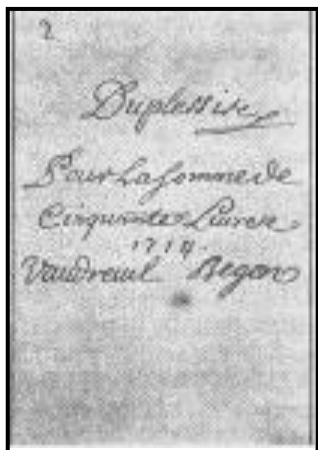 2
Duplessis
Pour La Somme de
Cinquante Livres
1714.
Vaudreuil Begon